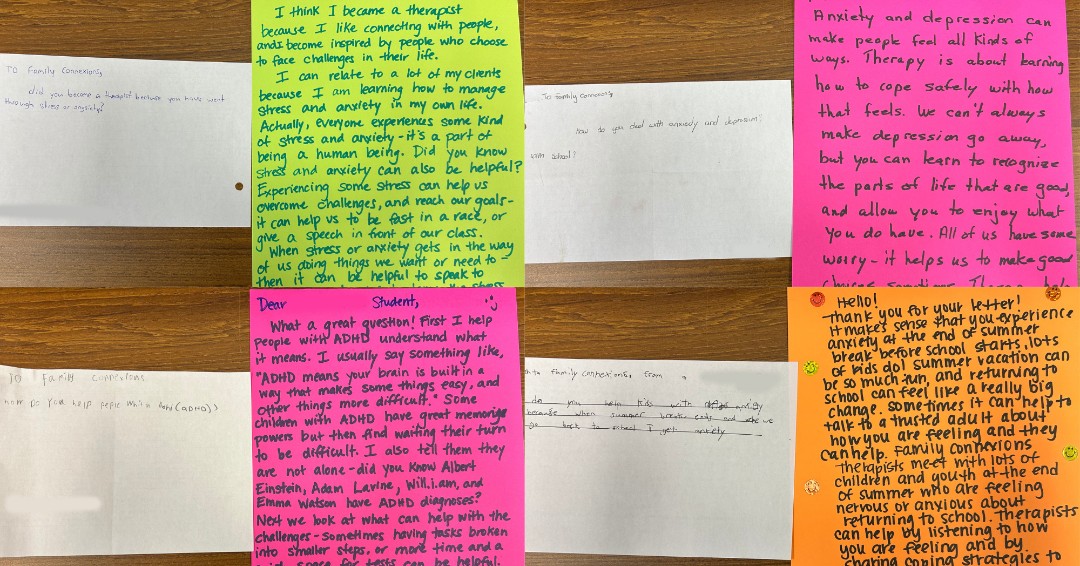 To Family Connexions,
did you become a therapist because you have went
through stress or anxiety?
I think I became a therapist
because I like connecting with people,
and I become inspired by people who choose
to face challenges in their life.
I can relate to a lot of my clients
because I am learning how to manage
stress and anxiety in my own life.
Actually, everyone experiences some kind
of stress and anxiety - it's a part of
being a human being. Did you know
stress and anxiety can also be helpful?
Experiencing some stress can help us
overcome challenges, and reach our goals -
it can help us to be fast in a race, or
give a speech in front of our class.
When stress or anxiety gets in the way
of us doing things we want or need to -
then it can be helpful to speak to
To Family Connexions,
how do you deal with anxiety and depression?
with school?
Anxiety and depression can
make people feel all kinds of
ways. Therapy is about learning
how to cope safely with how
that feels. We can't always
make depression go away,
but you can learn to recognize
the parts of life that are good,
and allow you to enjoy what
you do have. All of us have some
worry - it helps us to make good
choices sometimes.
To Family connexions
How Do You help people with (ADHD)
Dear Student,
What a great question! First I help
people with ADHD understand what
it means. I usually say something like,
"ADHD means your brain is built in a
way that makes some things easy, and
other things more difficult." Some
children with ADHD have great memorize
powers but then find waiting their turn
to be difficult. I also tell them they
are not alone - did you know Albert
Einstein, Adam Lavine, Will.i.am, and
Emma Watson have ADHD diagnoses?
Next we look at what can help with the
challenges - sometimes having tasks broken
into smaller steps, or more time and a
space for tests can be helpful.
Family connexions, from
do you help kids with anxiety
because when summer break ends and we
go back to school I get anxiety
Hello!
Thank you for your letter!
It makes sense that you experience
anxiety at the end of summer
break before school starts, lots
of kids do! Summer vacation can
be so much fun, and returning to
school can feel like a really big
change. Sometimes it can help to
talk to a trusted adult about
how you are feeling and they
can help. Family Connexions
Therapists meet with lots of
children and youth at the end
of summer who are feeling
nervous or anxious about
returning to school. Therapists
can help by listening to how
you are feeling and by
sharing coping strategies to